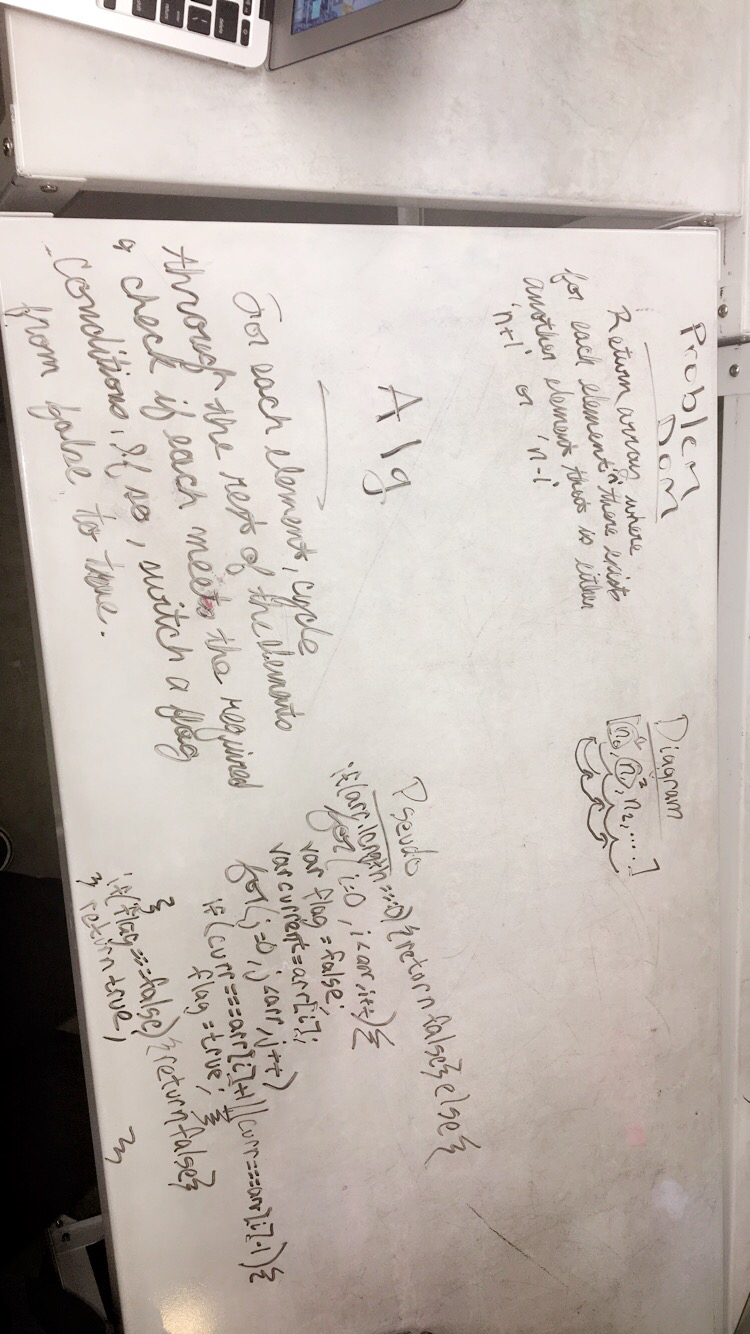 Problem
DOM
Return array where
for each element 'n' there exists
another element that is either
'n+1' or 'n-1'
Diagram
[n₀, n₁, n₂, .....]
Alg
For each element, cycle
through the rest of the elements
& check if each meets the required
conditions. If so, switch a flag
from false to true.
Pseudo
if(arr.length===0){return false}else{
for(i=0, i<arr, i++){
var flag=false;
var current=arr[i];
for(j=0, j<arr, j++)
if(curr===arr[i]+1||curr===arr[i]-1){
flag=true;}}
}
if(flag===false){return false}
}return true;
}